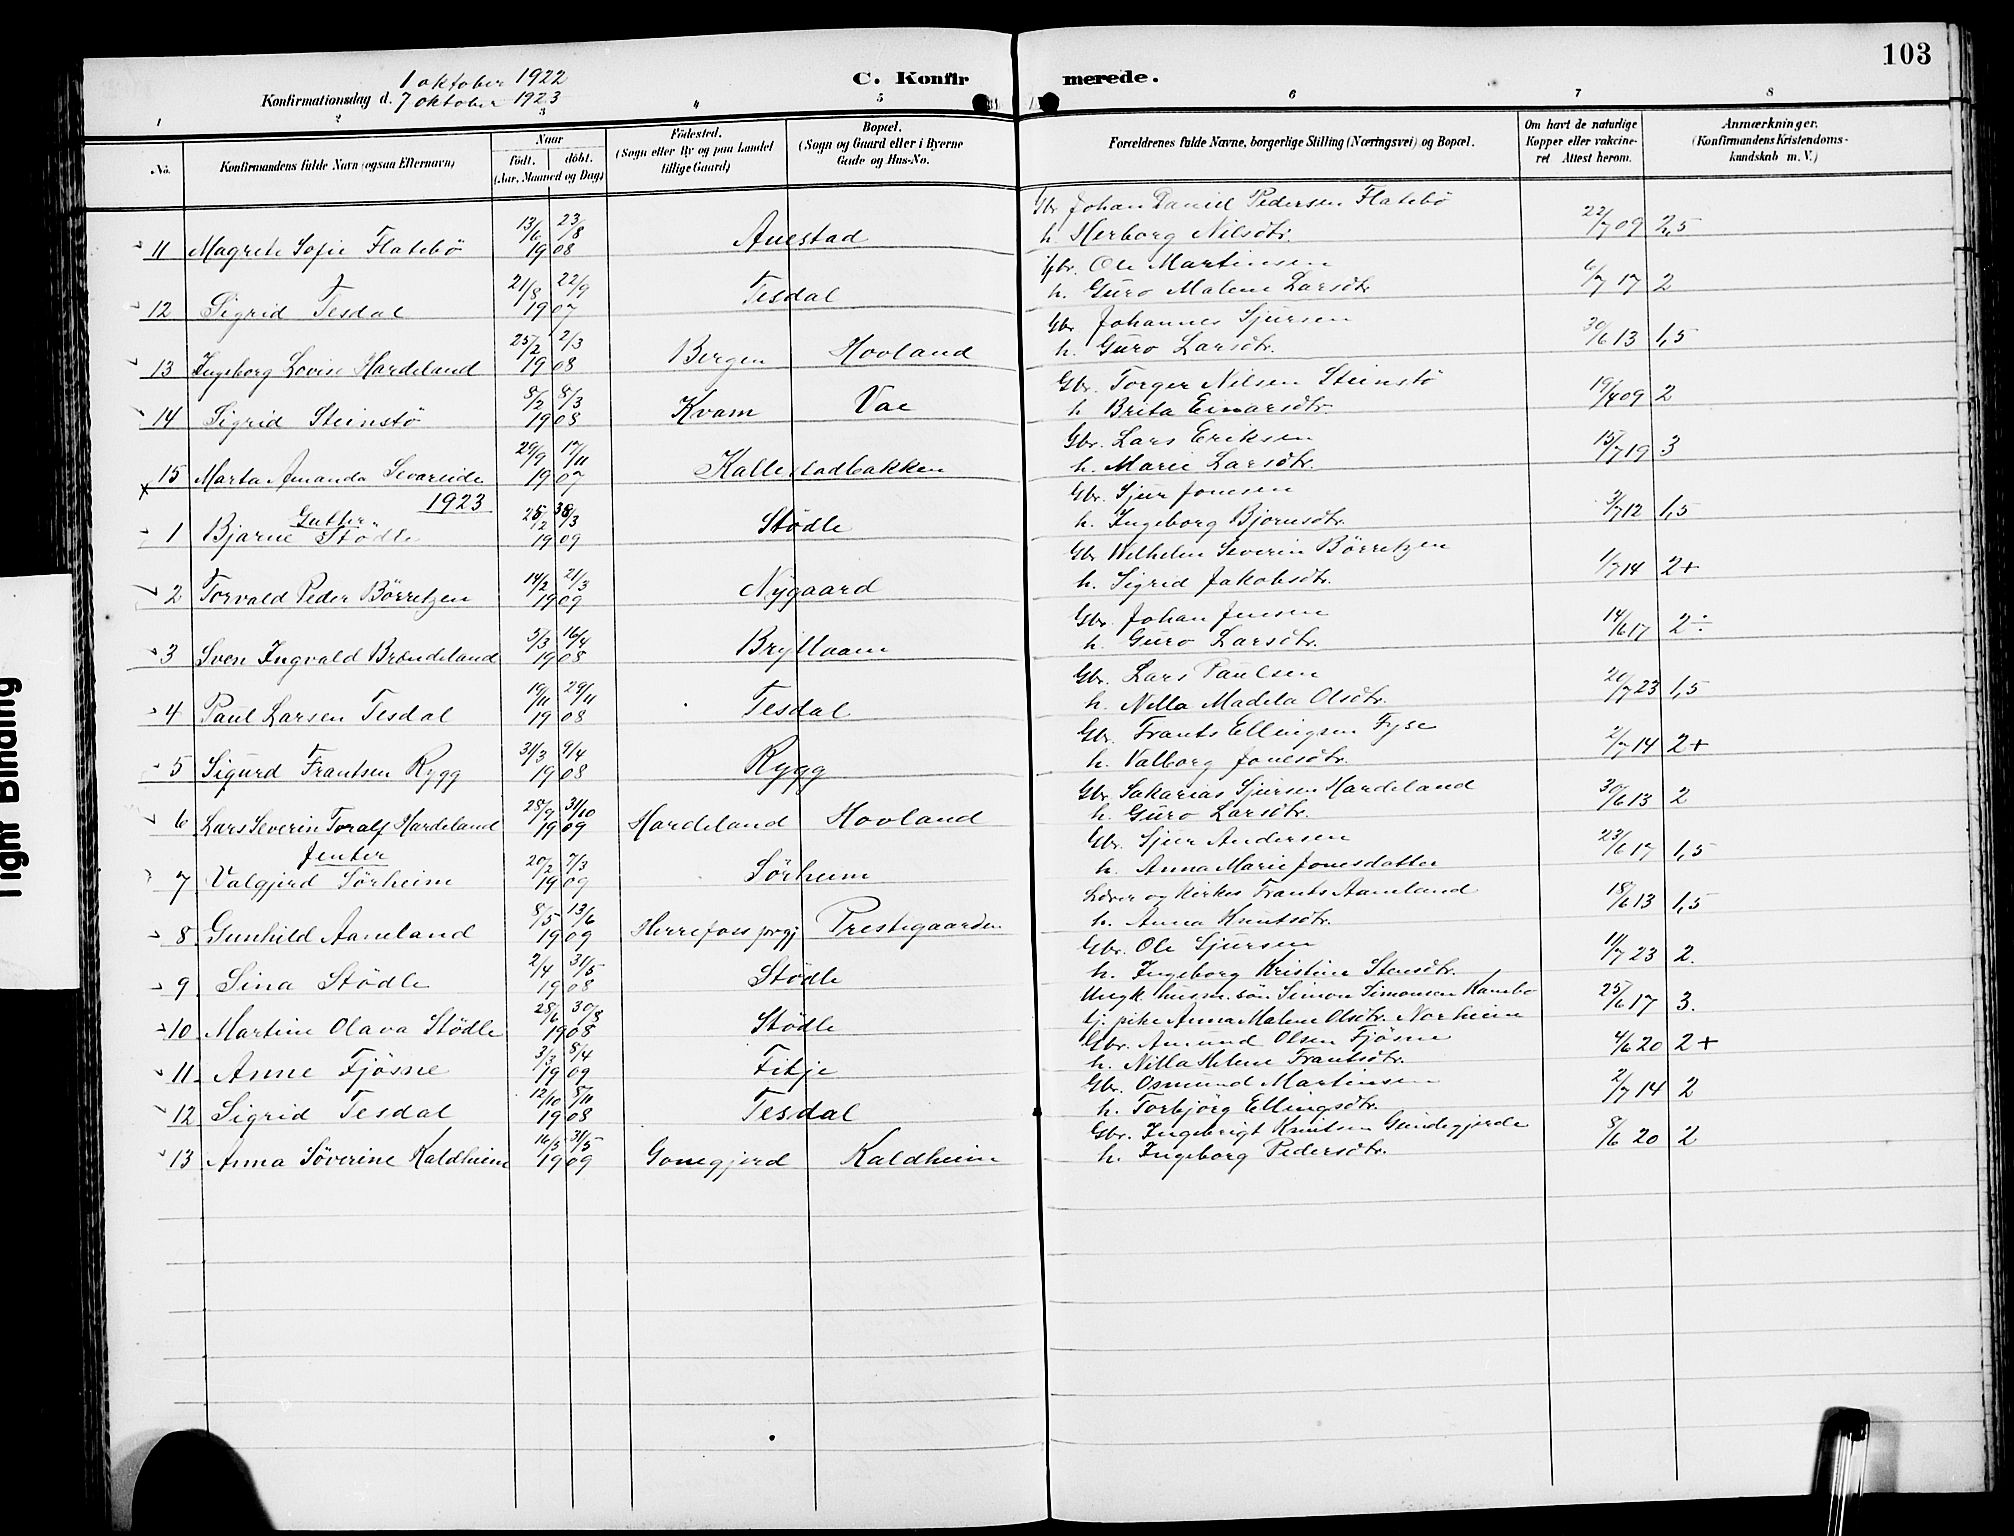 103
1 oktober 1922
C. Konfirmerede.
Konfirmationsdag d. 7 oktober 1923
1 2 3 4 5 6 7 8
No. Konfirmandens fulde Navn (ogsaa Efternavn) Naar født. døbt. (Aar, Maaned og Dag) Fødested. (Sogn eller By og paa Landet tillige Gaard) Bopæl. (Sogn og Gaard eller i Byerne Gade og Hus-No. Forældrenes fulde Navne, borgerlige Stilling (Næringsvei) og Bopæl. Om havt de naturlige Kopper eller vakcineret Attest herom. Anmærkninger. (Konfirmandens Kristendomskundskab m. V.)
11 Magrete Sofie Flatebö 13/6 23/8 1908 Auestad Gbr Johan Daniel Pedersen Flatebö h. Herborg Nilsdtr. 22/7 09 2,5
12 Sigrid Tesdal 21/8 22/9 1907 Tesdal Gbr. Ole Martinsen h. Guro Malene Larsdtr. 6/7 17 2
13 Ingeborg Lovise Hardeland 25/2 2/3 1908 Bergen Hovland Gbr Johannes Sjursen h. Guro Larsdtr. 30/6 13 1,5
14 Sigrid Steinstö 8/2 8/3 1908 Kvam Vae Gbr. Torger Nilsen Steinstö h Brita Einarsdtr. 19/4 09 2
x 15 Marta Amanda Sevareide 29/9 17/11 1907 Kallestadbakken Gbr. Lars Eriksen h. Marie Larsdtr. 15/7 19 3
1923
Gutter
1 Bjarne Stödle 1909 Stödle Gbr. Sjur Jonesen h. Ingeborg Bjornsdtr. 3/7 12 1,5
2 Torvald Peder Börretzen 14/2 21/3 1909 Nygaard Gbr Wilhelm Severin Börretzen h. Sigrid Jakobsdtr. 1/7 14 2+
3 Sven Ingvald Brendeland 5/3 16/4 1908 Bryllaam Gbr. Johan Jensen h. Guro Larsdtr. 14/6 17 2÷
4 Paul Larsen Tesdal 19/11 29/11 1908 Tesdal Gbr. Lars Paulsen h. Nella Madela Olsdtr. /7 23 1,5
5 Sigurd Frantsen Rygg 31/3 9/4 1908 Rygg Gbr. Frants Ellingsen Fyse h. Valborg Jonesdtr. 2/7 14 2+
6 Lars Severin Toralf Hardeland 28/9 31/10 1909 Hardeland Hovland Gbr Sakarias Sjursen Hardeland h. Guro Larsdtr. 30/6 13 2
Jenter
7 Valgjerd Sörheim 20/2 7/3 1909 Sörheim Gbr. Sjur Andersen h. Anna Marie Jonesdatter 23/6 17 1,5
8 Gunhild Aamland 8/5 13/6 1909 Herrefoss prgj Prestegaarden Lærer og kirkes Frants Aamland h. Anna Knutsdtr. 18/6 13 1,5
9 Sina Stödle 2/4 31/5 1908 Stödle Gbr. Ole Sjursen h. Ingeborg Kristine Stensdtr. 11/7 23 2.
10 Martine Olava Stödle 28/6 30/8 1908 Stödle Ungk. husm. sön Simon Simonsen Kambo tj. pike Anna Malene Olsdtr. Norheim 25/6 17 3.
11 Anne Fjösne 3/3 8/4 1909 Fitje Gbr. Amund Olsen Fjösne h. Nilla Helene Frantsdtr. 4/6 20 2+
12 Sigrid Tesdal 12/10 8/11 1908 Tesdal Gbr. Osmund Martinsen h. Torbjörg Ellingsdtr. 2/7 14 2
13 Anna Söverine Kaldheim 16/3 31/5 1909 Gonegjerd Kaldheim Gbr. Ingebrigt Knutsen Gundegjerde h. Ingeborg Pedersdtr. 8/6 20 2
Tight Binding